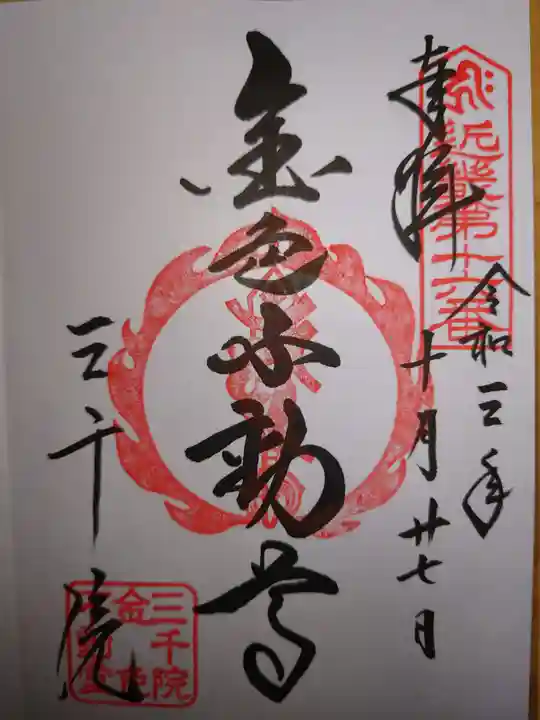 奉拝
令和三年
十月廿七日
近畿第十六番
金色不動尊
三千院
三千院
金色